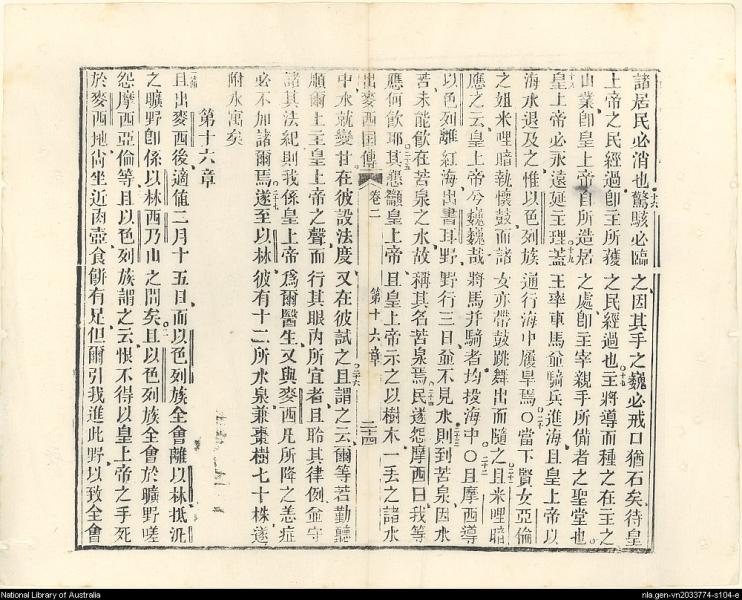 諸居民必消也驚駭必臨之因其手之巍必戒口猶石矣待皇
上帝之民經過即主所獲之民經過也主將導而種之在主之
山業即皇上帝自所造居之處即主宰親手所備者之聖堂也
皇上帝必永遠延王理蓋王率車馬並騎兵進海且皇上帝以
海水退及之惟以色列族通行海中履旱焉〇當下賢女亞倫
之妞米哩暗執懷鼓而諸女亦帶鼓跳舞出而隨之且米哩暗
應之云皇上帝兮巍巍哉將馬并騎者均投海中〇且摩西導
以色列離紅海出書耳野野行三日並不見水則到苦泉因水
苦未能飲在苦泉之水故稱其名苦泉焉民遂怨摩西曰我等
應何飲耶其懇籲皇上帝且皇上帝示之以樹木一丟之諸水
出麥西國傳 卷二 第十六章 二十四
中水就變甘在彼設法度又在彼試之且謂之云爾等若勤聽
顧爾上主皇上帝之聲而行其眼內所宜者且聆其律例並守
諸其法紀則我係皇上帝為爾醫生又與麥西凡所降之恙症
必不加諸爾焉遂至以林彼有十二所水泉兼棗樹七十株遂
附水寓矣
第十六章
且出麥西後適值二月十五日而以色列族全會離以林抵汛
之曠野即係以林西乃山之間矣且以色列族全會於曠野嗟
怨摩西亞倫等且以色列族謂之云恨不得以皇上帝之手死
於麥西地尚坐近肉壺食餅有足但爾引我進此野以致全會
National Library of Australia
nla.gen-vn2033774-s104-e